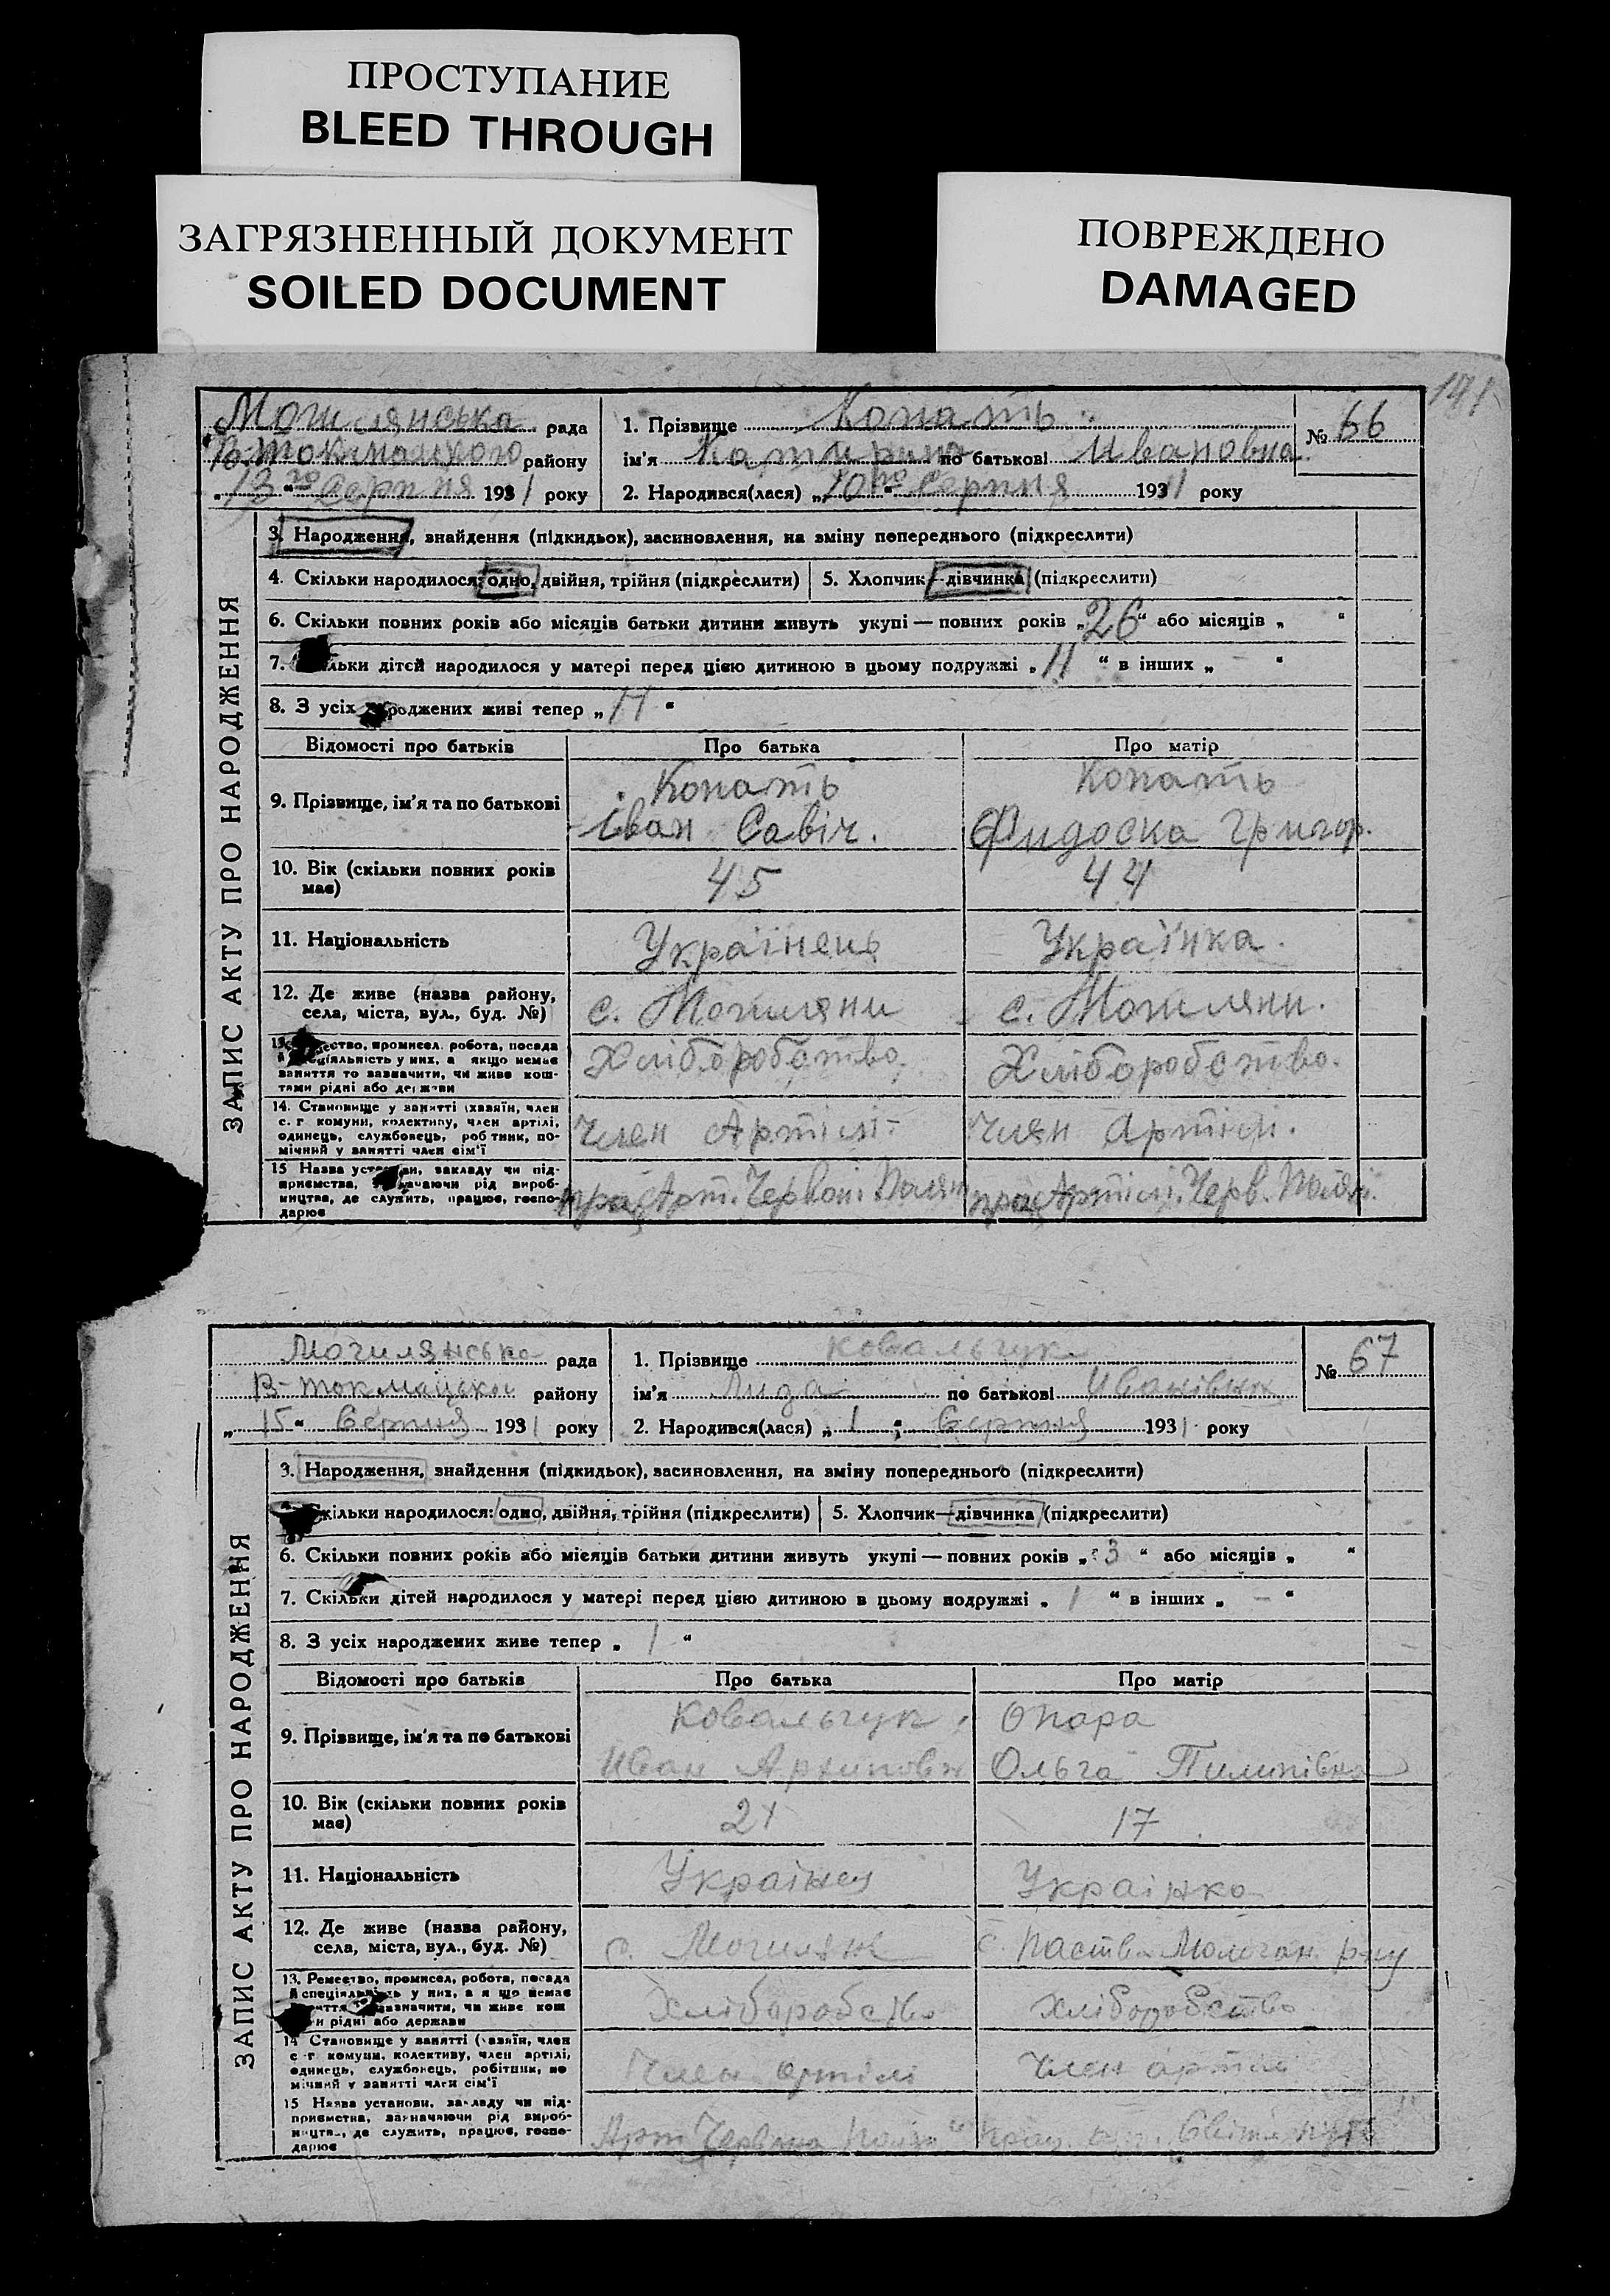 ПРОСТУПАНИЕ
BLEED THROUGH
ЗАГРЯЗНЕННЫЙ ДОКУМЕНТ
SOILED DOCUMENT
ПОВРЕЖДЕНО
DAMAGED
Могилянська рада
В-Токмацкого району
"13го" Серпня 1931 року
1. Прізвище Копать
ім'я Катирина по батькові Ивановна
2. Народився(лася) "10го" Серпня 1931 року
№ 66
ЗАПИС АКТУ ПРО НАРОДЖЕННЯ
3. Народження, знайдення (підкидьок), засиновлення, на зміну попереднього (підкреслити)
4. Скільки народилося: одно, двійня, трійня (підкреслити) 5. Хлопчик—дівчинка (підкреслити)
6. Скільки повних років або місяців батьки дитини живуть укупі — повних років „26“ або місяців „ “
7. льки дітей народилося у матері перед цією дитиною в цьому подружжі „11“ в інших „ — “
8. З усіх роджених живі тепер „11“
Відомості про батьків Про батька Про матір
9. Прізвище, ім'я та по батькові
Копать Копать
Іван Савіч. Фидоска Григор.
10. Вік (скільки повних років має) 45 44
11. Національність Українець Українка.
12. Де живе (назва району, села, міста, вул., буд. №) с. Могиляни с. Могиляни.
13. ество, промисел, робота, посада й ціяльність у них, а якщо немає заняття то зазначити, чи живе коштами рідні або держави Хліборобство. Хліборобство.
14. Становище у занятті (хазяїн, член с. г комуни, колективу, член артілі, одинець, службовець, робітник, помічний у занятті член сім'ї Член Артілі- Член Артілі.
15 Назва установи, закладу чи підприємства, зазначаючи рід виробництва, де служить, працює, господарює
прац Арт. Червоні Поляни прац Артілі. Черв. Поляни.
Могилянська рада
В-токмацьки району
„15“ Серпня 1931 року
1. Прізвище Ковальчук
ім'я Лида по батькові Иванівна
2. Народився(лася) „1“ Серпня 1931 року
№ 67
ЗАПИС АКТУ ПРО НАРОДЖЕННЯ
3. Народження, знайдення (підкидьок), засиновлення, на зміну попереднього (підкреслити)
кільки народилося: одно, двійня, трійня (підкреслити) 5. Хлопчик—дівчинка (підкреслити)
6. Скільки повних років або місяців батьки дитини живуть укупі — повних років „3“ або місяців „ “
7. Скільки дітей народилося у матері перед цією дитиною в цьому подружжі „1“ в інших „ — “
8. З усіх народжених живе тепер „1“
Відомості про батьків Про батька Про матір
9. Прізвище, ім'я та по батькові
Ковальчук Опара
Иван Архипович Ольга Пилипівна
10. Вік (скільки повних років має) 21 17
11. Національність Українец Українка
12. Де живе (назва району, села, міста, вул., буд. №) с. Могиляни с. р-ну
13. Ремество, промисел, робота, посада й спеціяльність у них, а я що немає яття то зазначити, чи живе кош н рідні або держави Хліборобство Хліборобство
14 Становище у занятті (хазяїн, член с-г комуни, колективу, член артілі, одинець, службовець, робітник, помічний у занятті член сім'ї Член артілі Член артілі
15 Назва установи, закладу чи підприємства, зазначаючи рід виробництва, де служить, працює, господарює
Арт Червона прац